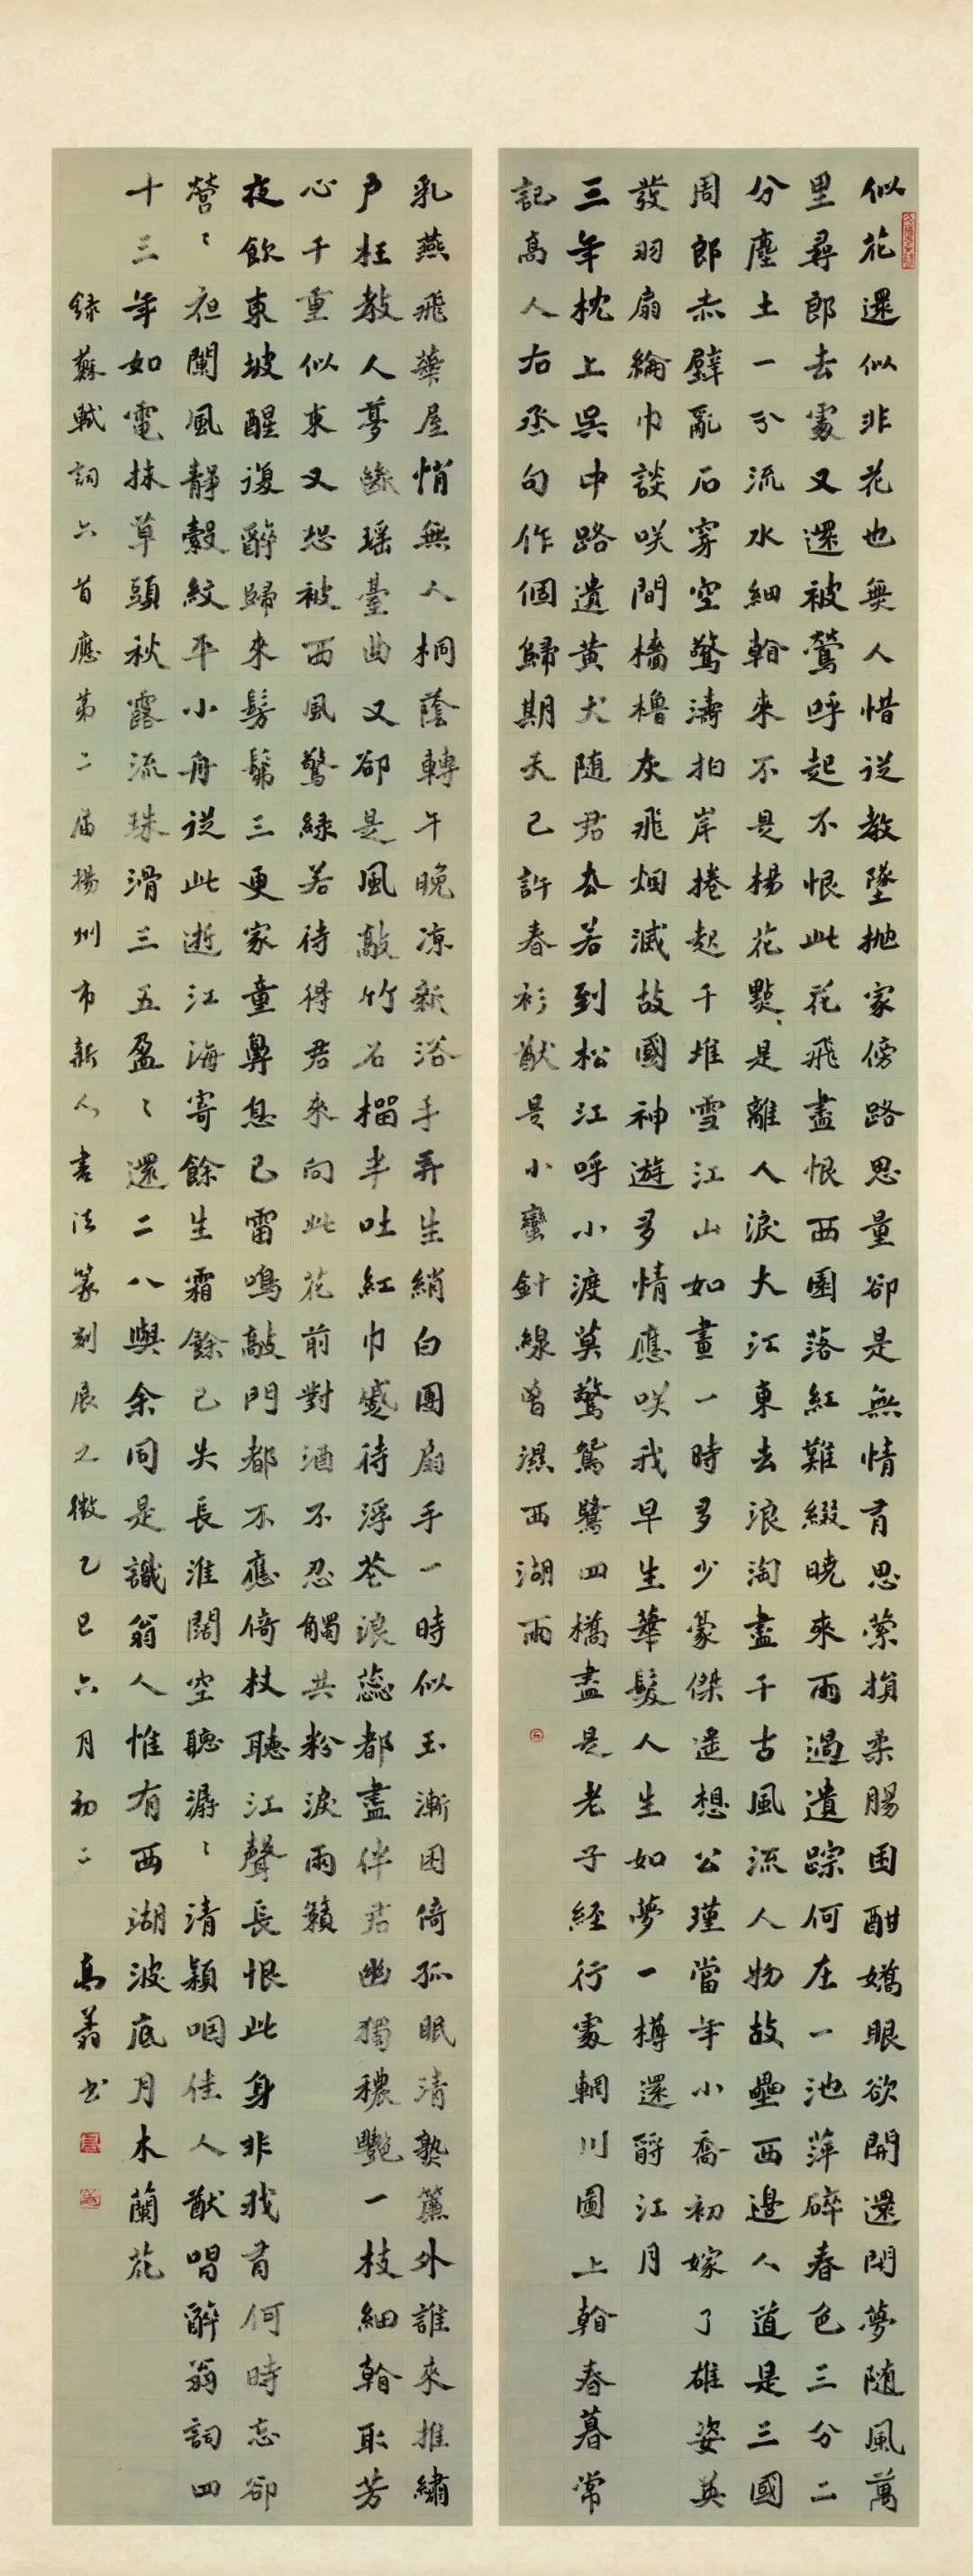 似花還似非花也無人惜從教墜抛家傍路思量卻是無情有思縈損柔腸困酣嬌眼欲開還閉夢随風萬
里尋郎去處又還被鶯呼起不恨此花飛盡恨西園落紅難綴曉來雨過遺踪何在一池萍碎春色三分二
分塵土一分流水細看來不是楊花點、是離人淚大江東去浪淘盡千古風流人物故壘西邊人道是三國
周郎赤壁亂石穿空驚濤拍岸捲起千堆雪江山如畫一時多少豪傑遥想公瑾當年小喬初嫁了雄姿英
發羽扇綸巾談咲間檣櫓灰飛烟滅故國神遊多情應咲我早生華髮人生如夢一樽還酹江月
三年枕上吳中路遣黃犬随君去若到松江呼小渡莫驚鴛鷺四橋盡是老子經行處輞川圖上看春暮常
記高人右丞句作個歸期天已許春衫猷是小蠻針線曾濕西湖雨
乳燕飛華屋悄無人桐蔭轉午晚涼新浴手弄生綃白團扇手一時似玉漸困倚孤眠清熟簾外誰來推繡
户枉教人夢斷瑶臺曲又卻是風敲竹石榴半吐紅巾蹙待浮花浪蕊都盡伴君幽獨穠艷一枝細看取芳
心千重似束又恐被西風驚綠若待得君來向此花前對酒不忍觸共粉淚雨簌
夜飲東坡醒復醉歸來髣髴三更家童鼻息已雷鳴敲門都不應倚杖聽江聲長恨此身非我有何時忘卻
營〻夜闌風靜縠紋平小舟從此逝江海寄餘生霜餘已失長淮闊空聽潺〻清潁咽佳人猷唱醉翁詞四
十三年如電抹草頭秋露流珠滑三五盈〻還二八與余同是識翁人惟有西湖波底月木蘭花
錄蘇軾詞六首應第二届揚州市新人書法篆刻展之徵乙巳六月初二 高翥書